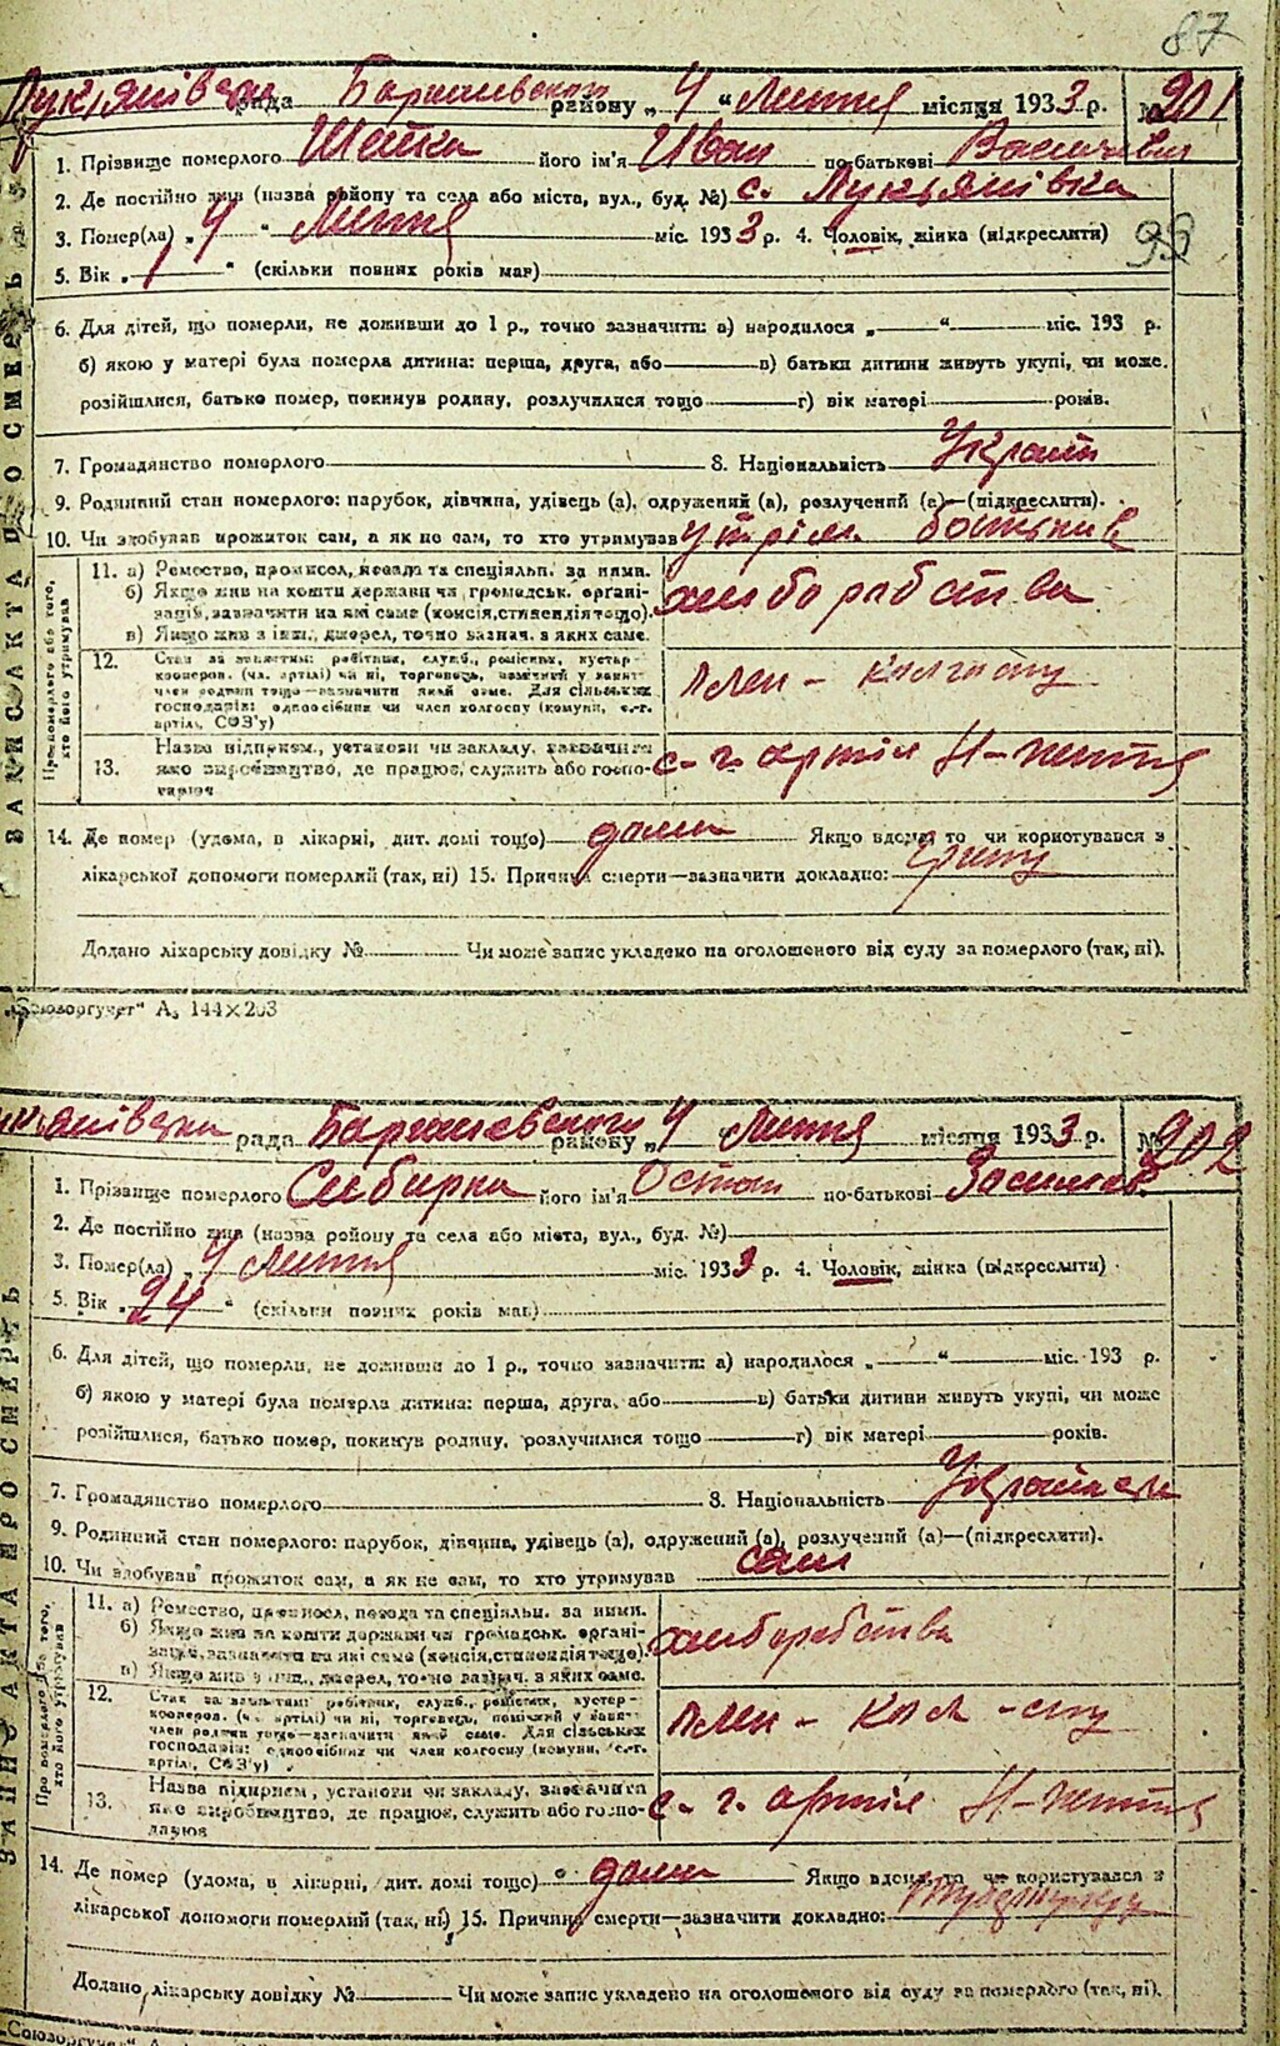 87
Лукьянівська рада Баришевського району „ 4 “ Лютня місяця 1933 р. № 201
1. Прізвище померлого Шейка його ім'я Иван по-батькові Васильевич
2. Де постійно жив (назва району та села або міста, вул., буд. №) с. Лукьянівка
3. Помер(ла) „ 4 “ Лютня міс. 1933 р. 4. Чоловік, жінка (підкреслити)
95
5. Вік „ 1 “ (скільки повних років мав)
6. Для дітей, що померли, не доживши до 1 р., точно зазначити: а) народилося „ “ міс. 193 р.
б) якою у матері була померла дитина: перша, друга, або в) батьки дитини живуть укупі, чи може
розійшлися, батько помер, покинув родину, розлучилися тощо г) вік матері років.
7. Громадянство померлого 8. Національність Украін
9. Родинний стан померлого: парубок, дівчина, удівець (а), одружений (а), розлучений (а)—(підкреслити).
10. Чи здобував прожиток сам, а як не сам, то хто утримував утрім. батьків
Про померлого або того, хто його утримував
11. а) Ремество, промисел, посада та спеціяльн. за ними.
б) Якщо жив на кошти держави чи громадськ. органі-
зацій, зазначити на які саме (пенсія, стипендія тощо).
в) Якщо жив з інш. джерел, точно зазнач. з яких саме.
хліборобства
12. Стан за заняттям: робітник, служб., ремісник, кустар-
кооперов. (чл. артілі) чи ні, торговець, помічний у занят.
член родини тощо—зазначити який саме. Для сільських
господарів: одноосібник чи член колгоспу (комуни, с.-г.
артіль, СОЗ'у)
член - колгоспу
13. Назва підприєм., установи чи закладу, зазначити
яке виробництво, де працює, служить або госпо-
дарює
с-г. артіл Н-життя
14. Де помер (удома, в лікарні, дит. домі тощо) дома Якщо вдома, то чи користувався з
лікарської допомоги померлий (так, ні) 15. Причина смерти—зазначити докладно:
Додано лікарську довідку № Чи може запис укладено на оголошеного від суду за померлого (так, ні).
„Союзоргучет“ А₅ 144×203
ЗАПИС АКТА ПРО СМЕРТЬ
рада Баришевского району „ 4 Лютня місяця 1933 р. № 202
1. Прізвище померлого Сибирка його ім'я Остап по-батькові
2. Де постійно жив (назва району та села або міста, вул., буд. №)
3. Помер(ла) „ 4 Лютня міс. 1933 р. 4. Чоловік, жінка (підкреслити)
5. Вік „ 24 “ (скільки повних років мав)
6. Для дітей, що померли, не доживши до 1 р., точно зазначити: а) народилося „ “ міс. 193 р.
б) якою у матері була померла дитина: перша, друга, або в) батьки дитини живуть укупі, чи може
розійшлися, батько помер, покинув родину, розлучилися тощо г) вік матері років.
7. Громадянство померлого 8. Національність Украінец
9. Родинний стан померлого: парубок, дівчина, удівець (а), одружений (а), розлучений (а)—(підкреслити).
10. Чи здобував прожиток сам, а як не сам, то хто утримував сам
Про померлого або того, хто його утримував
11. а) Ремество, промисел, посада та спеціяльн. за ними.
б) Якщо жив на кошти держави чи громадськ. органі-
зацій, зазначити на які саме (пенсія, стипендія тощо).
в) Якщо жив з інш. джерел, точно зазнач. з яких саме.
хліборобства
12. Стан за заняттям: робітник, служб., ремісник, кустар-
кооперов. (чл. артілі) чи ні, торговець, помічний у занят.
член родини тощо—зазначити який саме. Для сільських
господарів: одноосібник чи член колгоспу (комуни, с.-г.
артіль, СОЗ'у)
член - кол-спу
13. Назва підприєм., установи чи закладу, зазначити
яке виробництво, де працює, служить або госпо-
дарює
с-г. артіл Н-життя
14. Де помер (удома, в лікарні, дит. домі тощо) дома Якщо вдома, то чи користувався з
лікарської допомоги померлий (так, ні) 15. Причина смерти—зазначити докладно:
Додано лікарську довідку № Чи може запис укладено на оголошеного від суду за померлого (так, ні).
„Союзоргучет“ А
ЗАПИС АКТА ПРО СМЕРТЬ